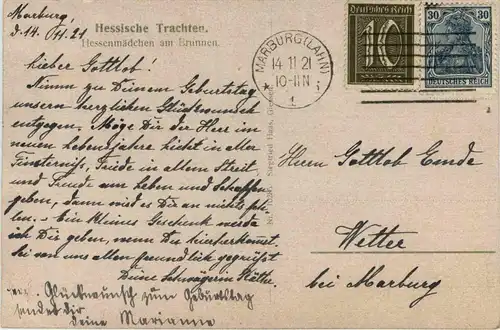 Marburg,
d. 14. 11. 21
Hessische Trachten.
Hessenmädchen am Brunnen.
Lieber Gottlob!
Nimm zu Deinem Geburtstag
unsern herzlichen Glückwunsch
entgegen. Möge Dir der Herr im
neuen Lebensjahre Licht in aller
Finsterniß, Friede in allem Streit
und Freude am Leben und Schaffen
geben, dann wird es Dir an nichts feh-
len. – Ein kleines Geschenk werde
ich Dir geben, wenn Du hierherkommst.
Sei von uns allen freundlich gegrüßt
Deine Schwägerin Käthe.
Glückwunsch zum Geburtstag
sendet dir
deine Marianne
Siegfried Haas,
MARBURG (LAHN)
14 11 21
10-11 N
Deutsches Reich
10
30 30
DEUTSCHES REICH
Herrn Gottlob Emde
Wetter
bei Marburg